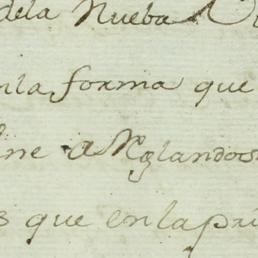 dela Nueba
nla forma que
ine aRglandos
s que enlapri